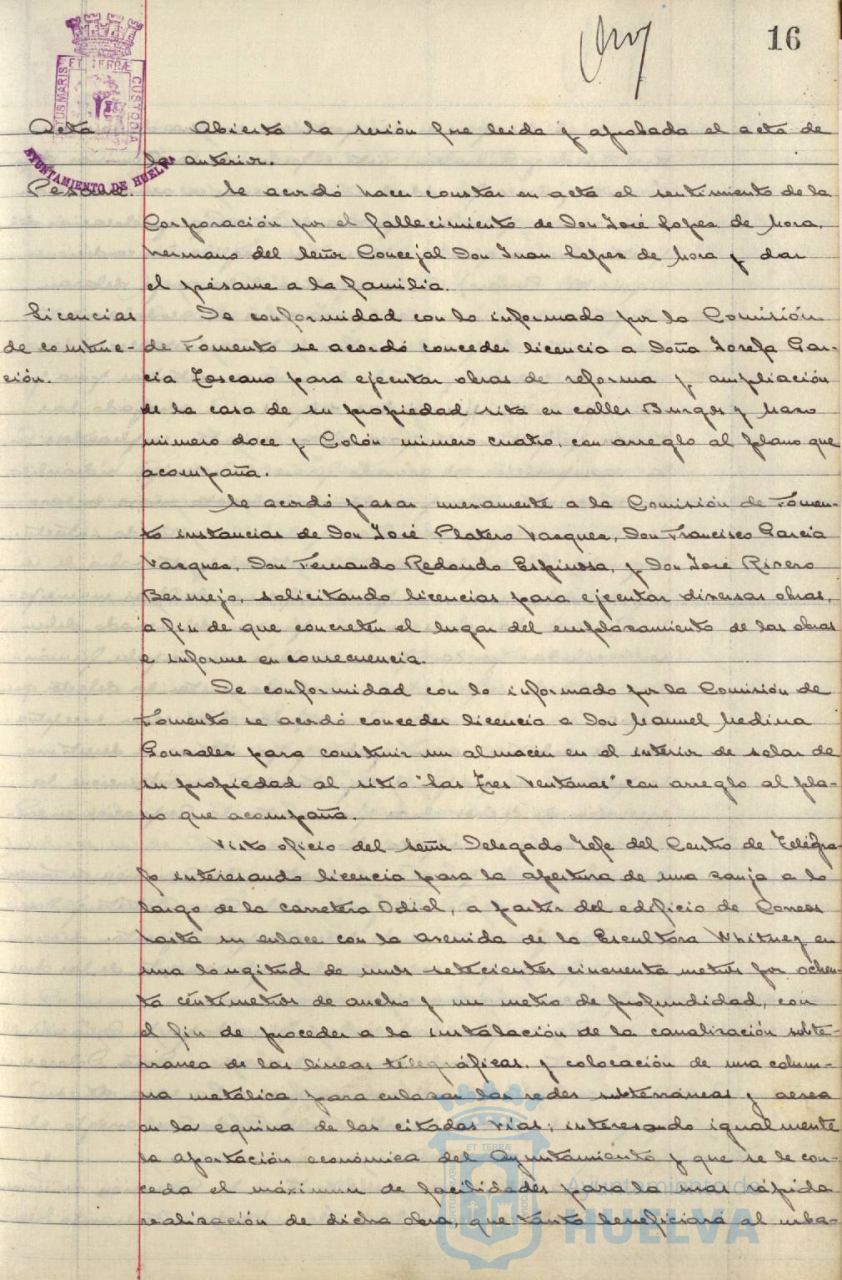 16
PORTUS MARIS ET TERRÆ CUSTODIA
AYUNTAMIENTO DE HUELVA
Acta Abierta la sesión fue leida y aprobada el acta de
la anterior.
Pesame. Se acordó hacer constar en acta el sentimiento de la
Corporación por el fallecimiento de Don José Lopez de Mora,
hermano del Señor Concejal Don Juan Lopez de Mora y dar
el pésame a la familia.
Licencias De conformidad con lo informado por la Comisión
de construc- de Fomento se acordó conceder licencia a Doña Josefa Gar-
ción. cía Toscano para ejecutar obras de reforma y ampliación
de la casa de su propiedad sita en calles Burgos y Mazo
número doce y Colón número cuatro, con arreglo al plano que
acompaña.
Se acordó pasar nuevamente a la Comisión de Fomen-
to instancias de Don José Platero Vazquez, Don Francisco García
Vazquez, Don Fernando Redondo Espinosa, y Don José Rivero
Bermejo, solicitando licencias para ejecutar diversas obras,
a fin de que concreten el lugar del emplazamiento de las obras
e informe en consecuencia.
De conformidad con lo informado por la Comisión de
Fomento se acordó conceder licencia a Don Manuel Medina
Gonzalez para construir un almacén en el interior de solar de
su propiedad al sitio "Las Tres Ventanas" con arreglo al pla-
no que acompaña.
Visto oficio del Señor Delegado Jefe del Centro de Telégra-
fo interesando licencia para la apertura de una zanja a lo
largo de la carretera Odiel, a partir del edificio de Correos
hasta su enlace con la Avenida de la Escultora Whitney en
una longitud de unos setecientos cincuenta metros por ochen-
ta céntimetros de ancho y un metro de profundidad, con
el fin de proceder a la instalación de la canalización subte-
rranea de las líneas telegráficas, y colocación de una colum-
na metálica para enlazar las redes subterráneas y aerea
en la equina de las citadas vías; interesando igualmente
la aportación económica del Ayuntamiento y que se le con-
ceda el máximun de facilidades para la mas rápida
realización de dicha obra, que tanto beneficiará al urba-
Ayuntamiento de
HUELVA